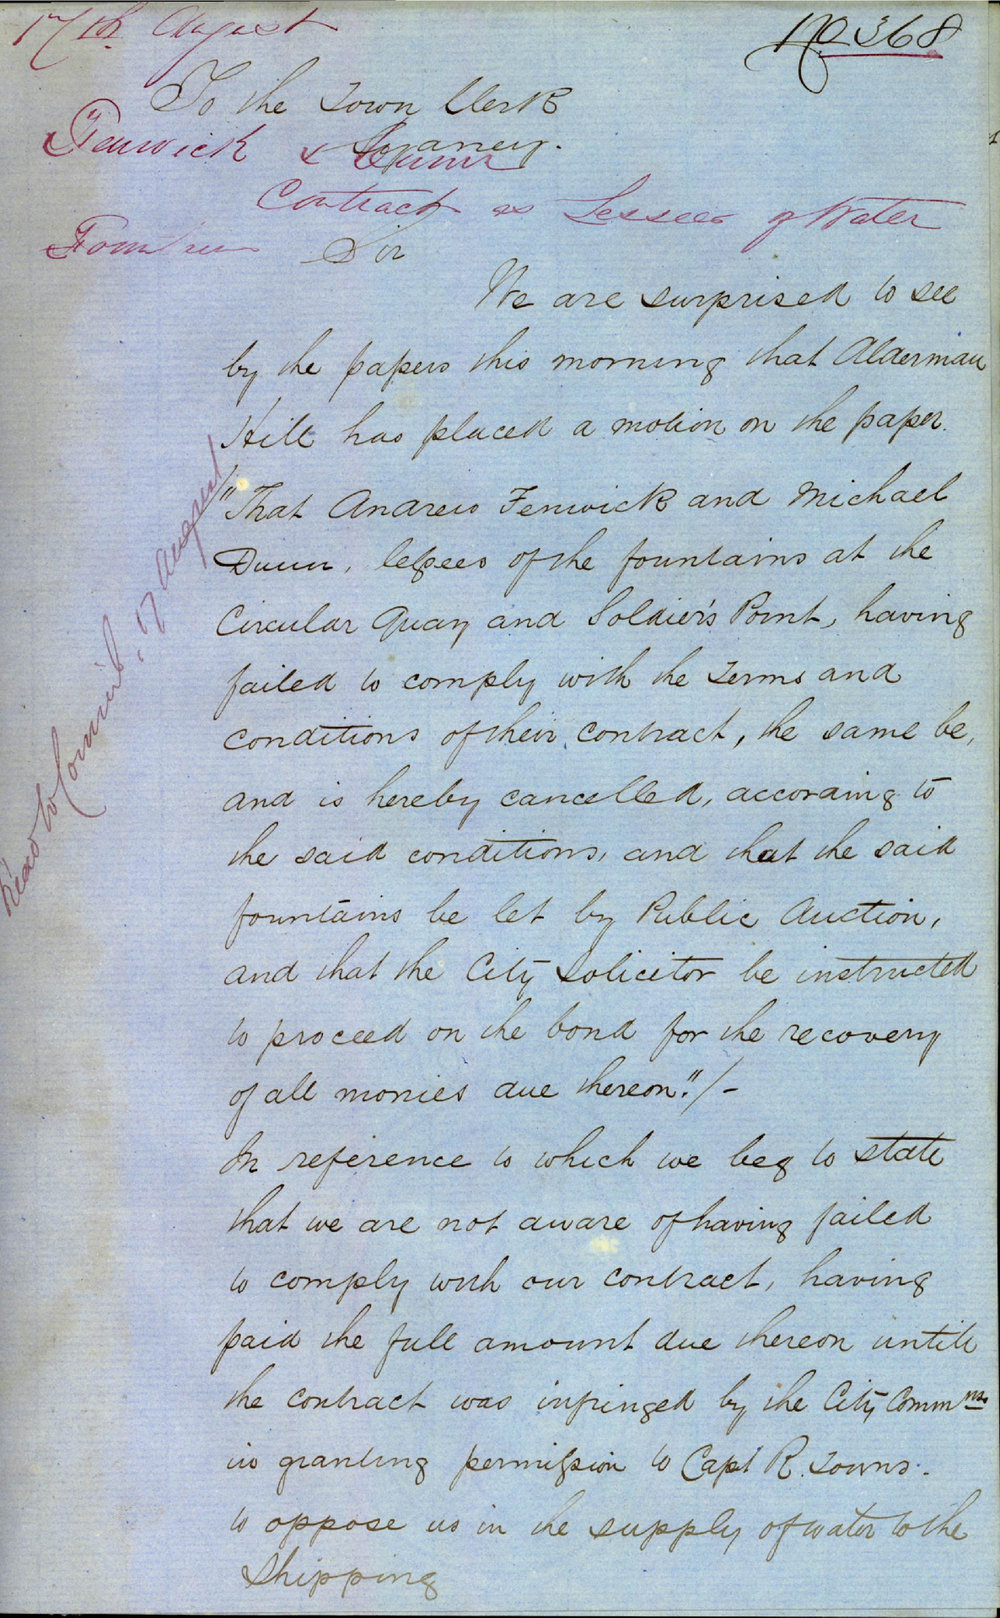 17th August
No 368
To the Town Clerk
Sydney.
Fenwick & Dunn
Contract as Lessees of Water
Fountains
Sir
We are surprised to see
by the papers this morning that Alderman
Hill has placed a motion on the paper.
"That Andrew Fenwick and Michael
Dunn, lessees of the fountains at the
Circular Quay and Soldier's Point, having
failed to comply with the terms and
conditions of their contract, the same be,
and is hereby cancelled, according to
the said conditions, and that the said
fountains be let by Public Auction,
and that the City Solicitor be instructed
to proceed on the bond for the recovery
of all monies due thereon."/-
In reference to which we beg to state
that we are not aware of having failed
to comply with our contract, having
paid the full amount due thereon untill
the contract was infringed by the City Commrs
in granting permission to Capt R. Towns.
to oppose us in the supply of water to the
Shipping
Read to Council, 17 August